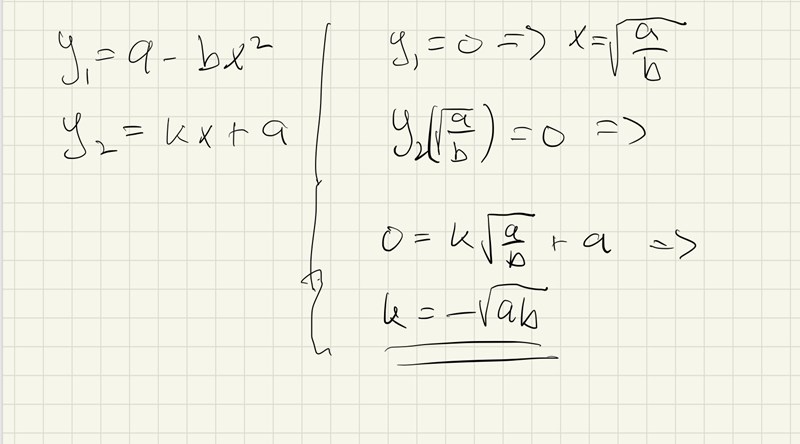 y₁ = a - bx²
y₂ = kx + a
y₁ = 0 => x = √(a/b)
y₂(√(a/b)) = 0 =>
0 = k√(a/b) + a =>
k = -√(ab)